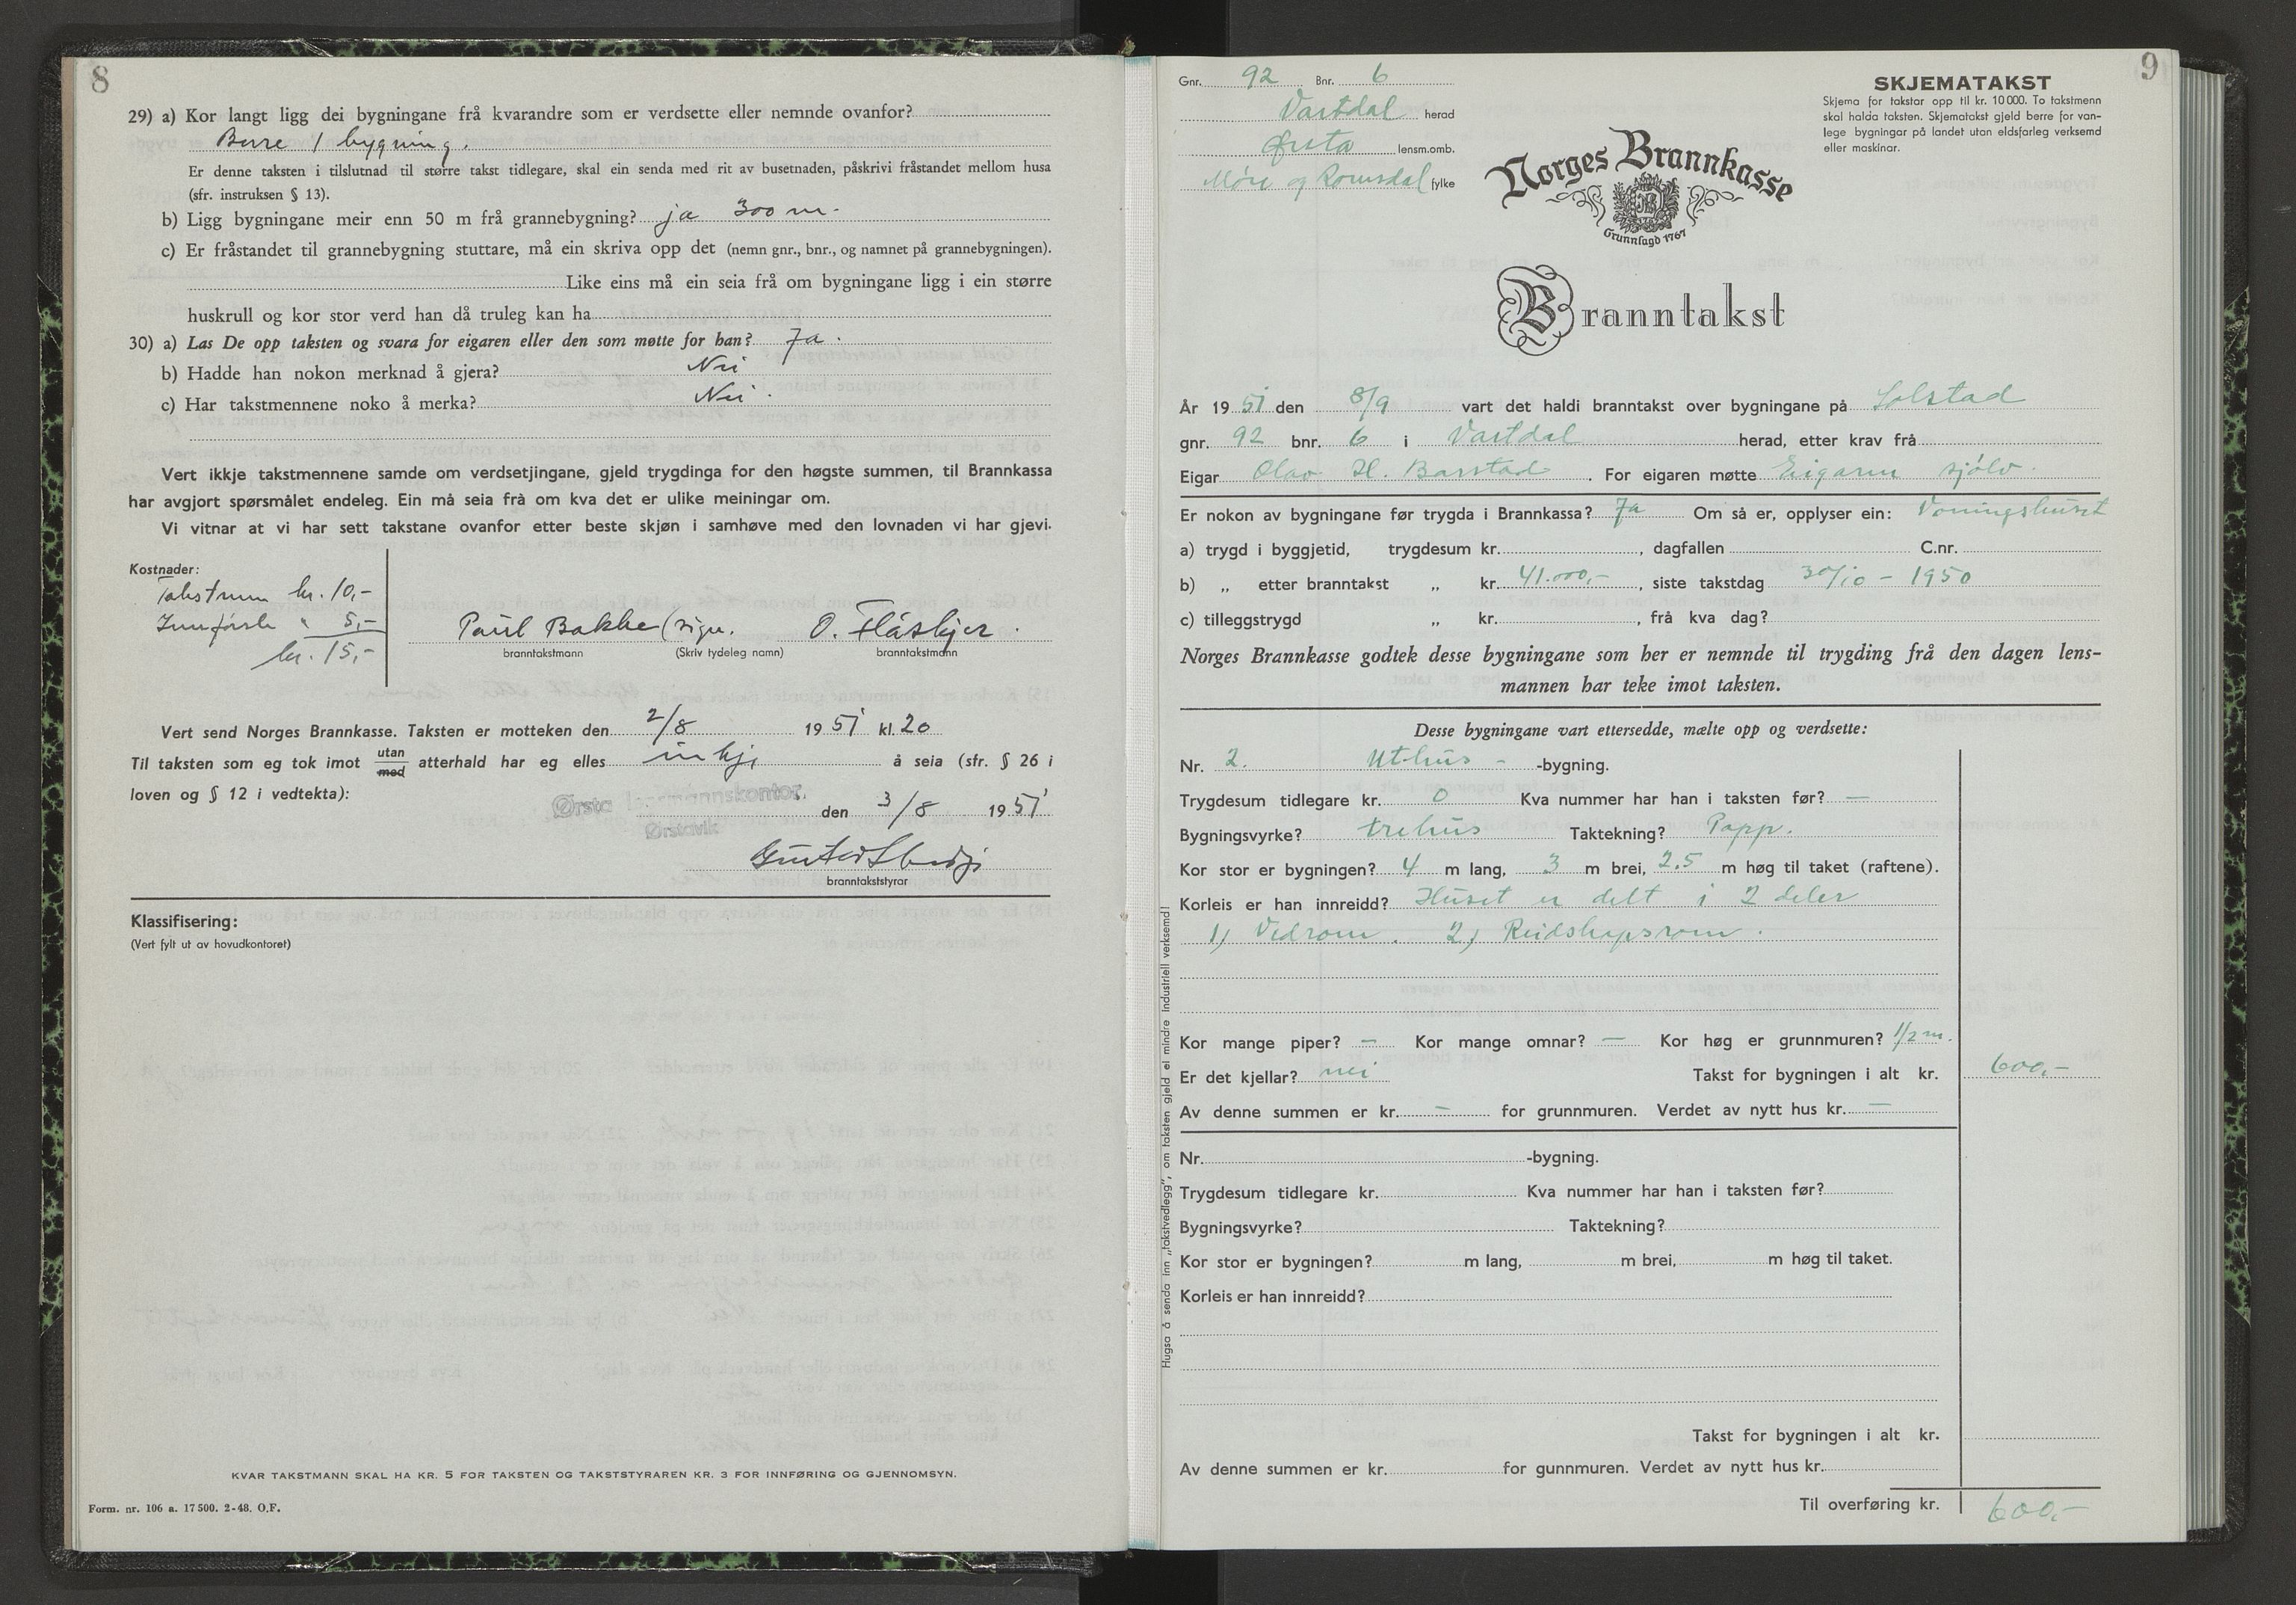 8
29) a) Kor langt ligg dei bygningane frå kvarandre som er verdsette eller nemnde ovanfor?
Berre 1 bygning.
Er denne taksten i tilslutnad til større takst tidlegare, skal ein senda med rit av busetnaden, påskrivi fråstandet mellom husa
(sfr. instruksen § 13).
b) Ligg bygningane meir enn 50 m frå grannebygning? ja 300 m.
c) Er fråstandet til grannebygning stuttare, må ein skriva opp det (nemn gnr., bnr., og namnet på grannebygningen).
Like eins må ein seia frå om bygningane ligg i ein større
huskrull og kor stor verd han då truleg kan ha
30) a) Las De opp taksten og svara for eigaren eller den som møtte for han? Ja.
b) Hadde han nokon merknad å gjera? Nei
c) Har takstmennene noko å merka? Nei.
Vert ikkje takstmennene samde om verdsetjingane, gjeld trygdinga for den høgste summen, til Brannkassa
har avgjort spørsmålet endeleg. Ein må seia frå om kva det er ulike meiningar om.
Vi vitnar at vi har sett takstane ovanfor etter beste skjøn i samhøve med den lovnaden vi har gjevi.
Kostnader:
Takstmenn kr. 10,-
Innførsle " 5,-
kr. 15,-
Paul Bakke (sign. O. Flåskjer.
branntakstmann (Skriv tydeleg namn) branntakstmann
Vert send Norges Brannkasse. Taksten er motteken den 2/8 1951 kl. 20
Til taksten som eg tok imot utan/med atterhald har eg elles inkje å seia (sfr. § 26 i
loven og § 12 i vedtekta):
Ørsta lensmannskontor.
Ørstavik
den 3/8 1951
branntakststyrar
Klassifisering:
(Vert fylt ut av hovudkontoret)
KVAR TAKSTMANN SKAL HA KR. 5 FOR TAKSTEN OG TAKSTSTYRAREN KR. 3 FOR INNFØRING OG GJENNOMSYN.
Form. nr. 106 a. 17 500. 2-48. O.F.
9
Gnr. 92 Bnr. 6
Vartdal herad
Ørsta lensm.omb.
Møre og Romsdal fylke
SKJEMATAKST
Skjema for takstar opp til kr. 10 000. To takstmenn
skal halda taksten. Skjematakst gjeld berre for van-
lege bygningar på landet utan eldsfarleg verksemd
eller maskinar.
Norges Brannkasse
Grunnlagd 1767
Branntakst
År 1951 den 8/9 vart det haldi branntakst over bygningane på Solstad
gnr. 92 bnr. 6 i Vartdal herad, etter krav frå
Eigar Olav H. Barstad. For eigaren møtte Eigaren sjølv.
Er nokon av bygningane før trygda i Brannkassa? Ja Om så er, opplyser ein: Våningshuset
a) trygd i byggjetid, trygdesum kr. , dagfallen C.nr.
b) „ etter branntakst „ kr. 41.000,- , siste takstdag 30/10 - 1950
c) tilleggstrygd „ kr. , frå kva dag?
Norges Brannkasse godtek desse bygningane som her er nemnde til trygding frå den dagen lens-
mannen har teke imot taksten.
Desse bygningane vart ettersedde, mælte opp og verdsette:
Nr. 2. Uthus - -bygning.
Trygdesum tidlegare kr. 0 Kva nummer har han i taksten før? —
Bygningsvyrke? trehus Taktekning? Papp.
Kor stor er bygningen? 4 m lang, 3 m brei, 2.5 m høg til taket (raftene).
Korleis er han innreidd? Huset er delt i 2 deler
1) Vedrom. 2) Reidskapsrom.
Kor mange piper? — Kor mange omnar? — Kor høg er grunnmuren? 1/2 m.
Er det kjellar? nei Takst for bygningen i alt kr. 600,-
Av denne summen er kr. — for grunnmuren. Verdet av nytt hus kr. —
Nr. -bygning.
Trygdesum tidlegare kr. Kva nummer har han i taksten før?
Bygningsvyrke? Taktekning?
Kor stor er bygningen? m lang, m brei, m høg til taket.
Korleis er han innreidd?
Takst for bygningen i alt kr.
Av denne summen er kr. for gunnmuren. Verdet av nytt hus kr.
Til overføring kr. 600,-
Hugsa å senda inn „takstvedlegg", om taksten gjeld ei mindre industriell verksemd!